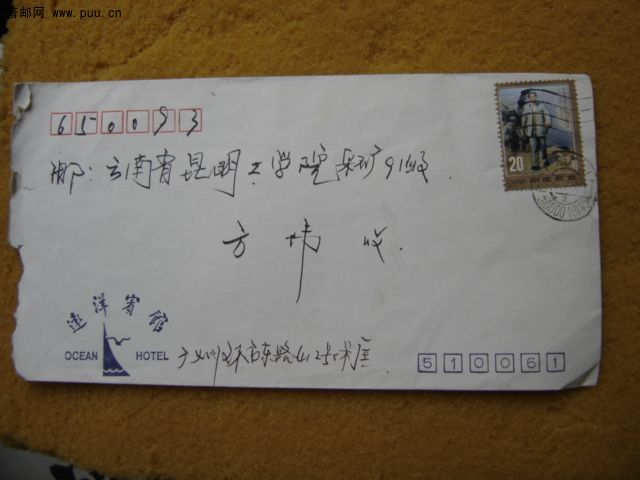 首邮网 www.puu.cn
650093
邮:云南省昆明工学院采矿91级
20
方 炜 收
遠洋賓館
OCEAN HOTEL
广州环市东路412号
510061